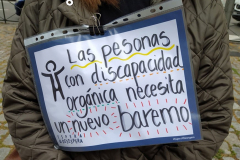 Las pesonas
con discapacidad
orgánica necesita
un nuevo baremo